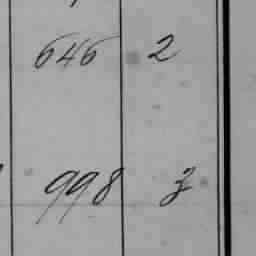 646 2
998 3